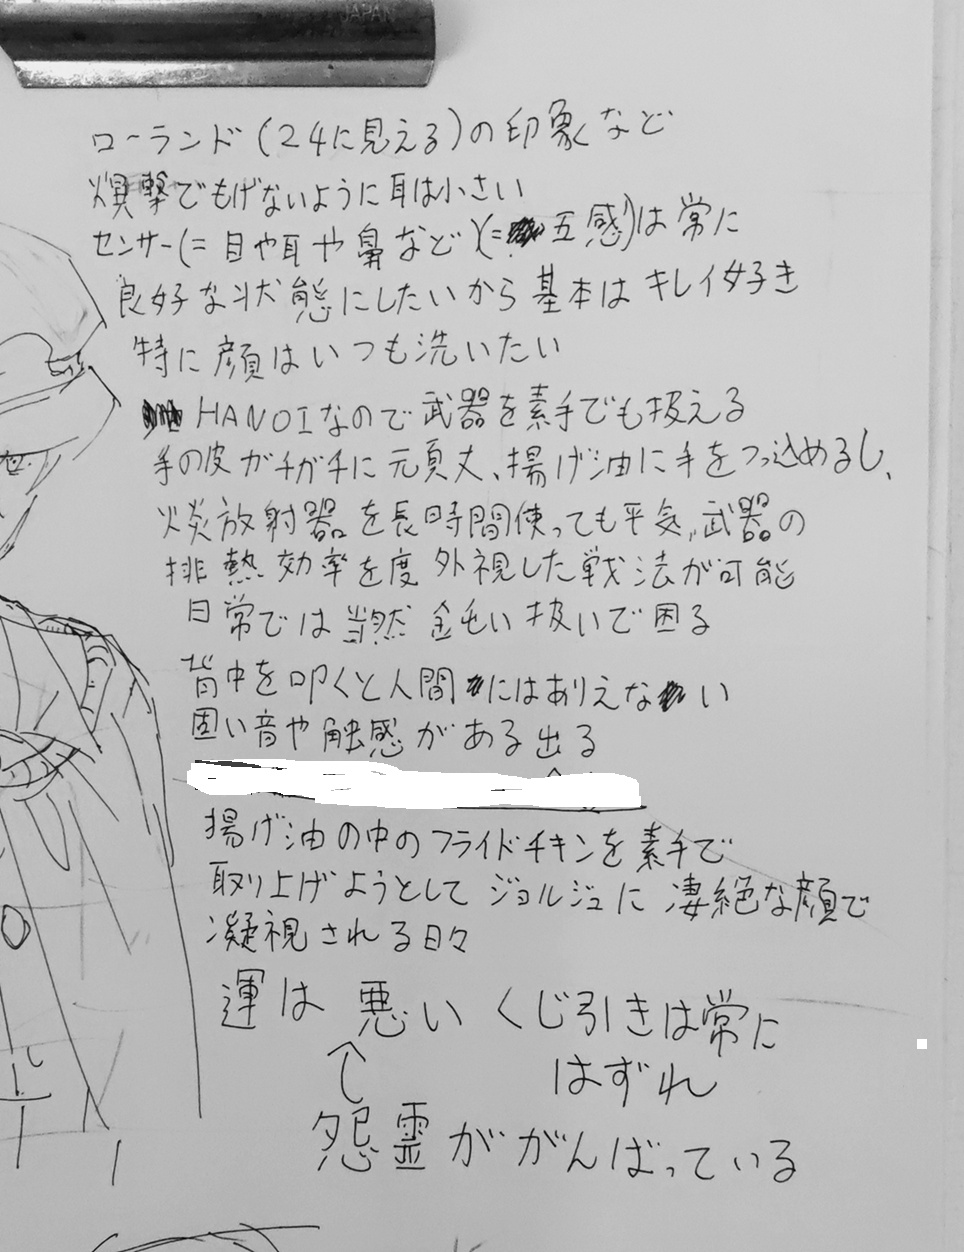 JAPAN
ローランド(24に見える)の印象など
爆撃でもげないように耳は小さい
センサー(=目や耳や鼻など)(=五感)は常に
良好な状態にしたいから基本はキレイ好き
特に顔はいつも洗いたい
HANOIなので武器を素手でも扱える
手の皮がチガチに元頁丈、揚げ油に手をつっ込めるし、
火炎放射器を長時間使っても平気、武器の
排熱効率を度外視した戦法が可能
日常では当然金屯い扱いで困る
背中を叩くと人間にはありえない
固い音や触感がある出る
揚げ油の中のフライドチキンを素手で
取り上げようとしてジョルジュに凄絶な顔で
凝視される日々
運は悪いくじ引きは常に
はずれ
怨霊ががんばっている